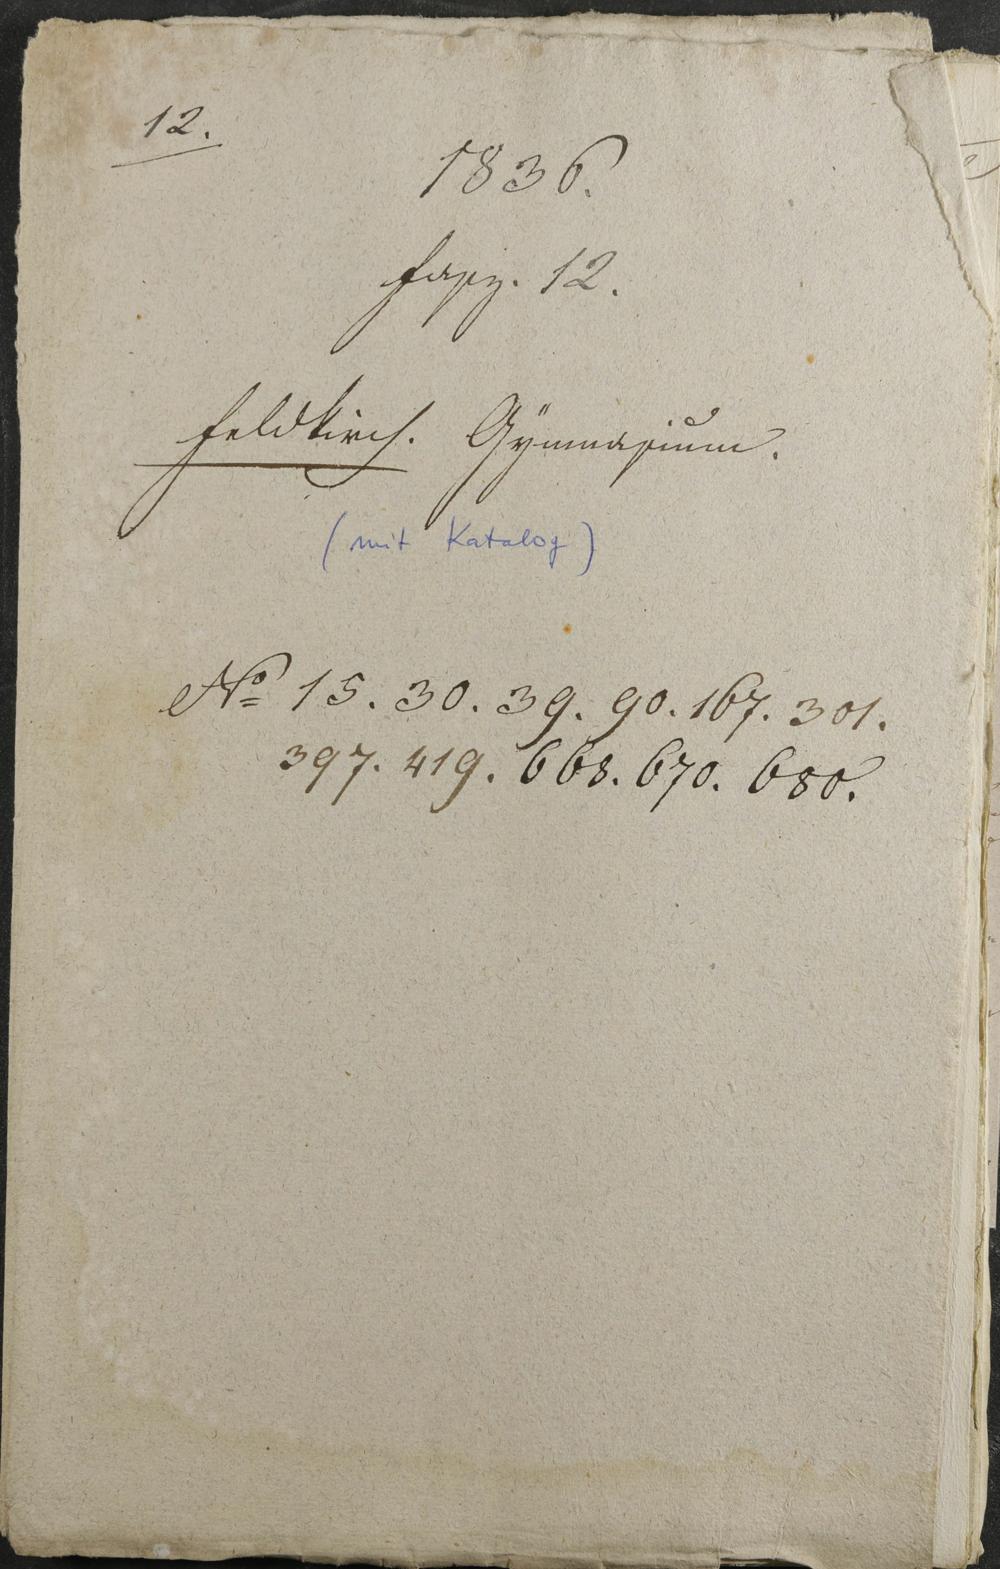 12.
1836.
Fasz. 12.
Feldkirch. Gÿmnasium.
(mit Katalog)
No 15. 30. 39. 90. 167. 301.
397. 419. 668. 670. 680.